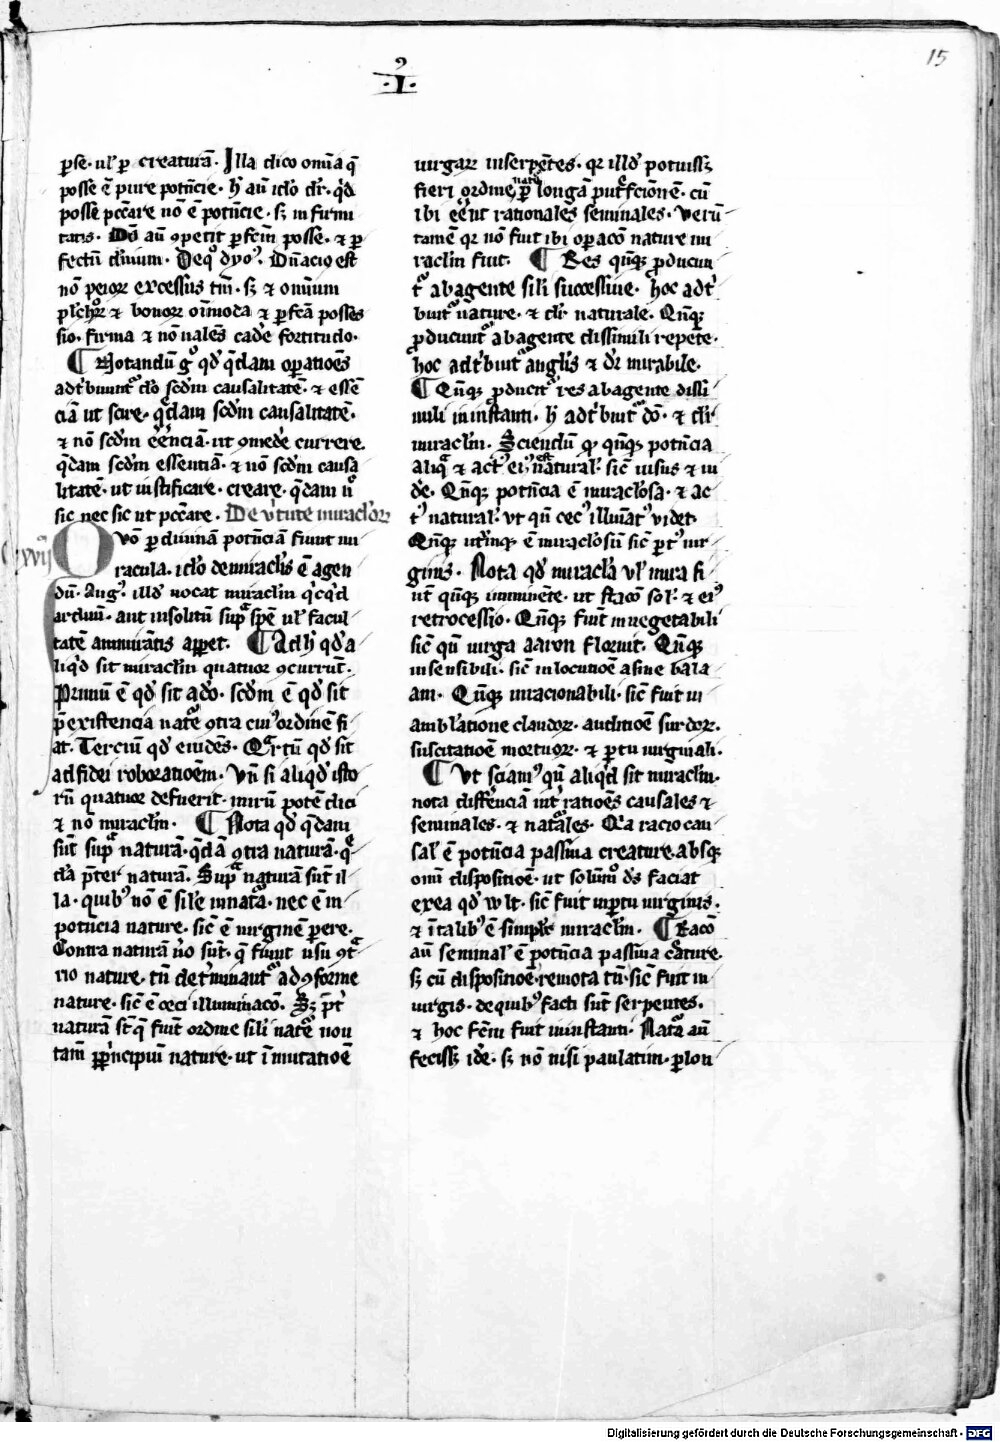 15
·I·
ꝑse· ul᷎ ꝑ creaturā· Illa dico om̄ia q̄
posse ē pure potn̄cie· hͥ aū ido dr̄· qd̓
posse pccāre nō ē potn̄cie· sꝫ infirmi
tatis· Dō aū ꝯpetit ꝑfcm̄ posse· ⁊ ꝑ
fectū diuīum·
nō peioꝝ excessus tm̄· sꝫ ⁊ omnium
⁊ bonoꝝ oīmoda ⁊ ꝑfcā posses
sio· firma ⁊ nō ualēs cade̓ fortitudo·
¶ Notandū gͦ qd̓ qͣdam oꝑationēs
adtͥbuuntᷣ dō scd̓m causalitatē· ⁊ essē
ciā ut scire· qͣdam scd̓m causalitatē·
⁊ nō scd̓m eēnciā· ut ꝯmede̓ currere
qͣdam scd̓m essentiā· ⁊ nō scd̓m causa
litatē· ut iustificare· creare· qͣdam nͦ
sic nec sic ut pccāre· De uͥtute miraclo̓ꝝ
xvij
Quō ꝑ diuinā potn̄ciā fiunt mi
racula· ido de miraclis̓ ē agen
dū· Augꝰ· illd̓ uocat miraclm̄ qͥcqͥd
arduū· aut insolitū supͣ spē ul᷎ facul
tatē ammirātis apꝑet· ¶ Ad hͥ qd̓ a
liqͥd sit miraclm̄ quatuor ꝯcurrūt·
Primū ē qd̓ sit a dō· scd̓m ē qd̓ sit
p̄existencia natͤ ꝯtra cuiꝰ ordinē fi
at· Terciū qd̓ euidēs· Qͣrtū qd̓ sit
ad fidei roboratioēm· Vn̄ si aliqd̓ isto
rū quatuor defuerit· mirū potē dici
⁊ nō miraclm̄· ¶ Nota qd̓ qͣdam
sūt supͣ naturā· qͣdā ꝯtra naturā· qͣ
dā p̄ter naturā· Supͣ naturā sūt il
la· quibꝰ nō ē sile̓ in natͣa· nec ē in
potn̄cia nature· sic̄ ē uirginē ꝑere·
Contra naturā uͦo sūt· q̄ fiunt usu ꝯtͣ
rio nature· tn̄ det̓minantᷣ ad ꝯforme
nature· sic̄ ē ceci illuminacō· Sꝫ p̄tͥ
naturā st̄ q̄ fiūt ordine sili̓ natͤ non
tam̄ ꝑ pͥncipiū nature· ut ī mutatioē
uirgaꝝ in serpētes· qꝛ illd̓ potuissꝫ
fieri ordine nͣte ꝑ longā putͤfcōnē· cū
ibi eēnt rationales seminales· Verū
tamē qꝛ nō fuit ibi oꝑacō nature mi
raclm̄ fuit· ¶ Res qn̄qꝫ ꝓducun
tᷣ ab agente sili̓ successiue· hoc adtͥ
buitᷣ nature· ⁊ dr̄ naturale· Qn̄qꝫ
ꝓducuntᷣ ab agente dissimili repēte·
hoc adtͥbuitᷣ anglis̓ ⁊ dr̄ mirabile·
¶ Qn̄qꝫ ꝓducitᷣ res ab agente dissi
mili in instanti· hͥ adtͥbuitᷣ dō· ⁊ dr̄
miraclm̄· Sciendū ꝙ qn̄qꝫ potn̄cia
aliqͣ ⁊ actꝰ eiꝰ est naturalꝭ· sic̄ uisus ⁊ ui
de̓· Qn̄qꝫ potn̄cia ē miraclosa̓· ⁊ ac
tꝰ naturalꝭ· ut qn̄ cecꝰ illuīatꝰ videt·
Qn̄qꝫ utrūqꝫ ē miraclosū̓ sic̄ ꝑtꝰ uir
ginis· Nota qd̓ miracla̓ ul᷎ mira fi
ūt qn̄qꝫ in mn̄ente· ut stacō solꝭ· ⁊ eiꝰ
retrocessio· Qn̄qꝫ fiūt in uegetabili
sic̄ qn̄ uirga aaron floruit· Qn̄qꝫ
insensibili· sic̄ in locutiōe asine bala
am· Qn̄qꝫ in racionabili· sic̄ fuit in
amblatione̓ claudoꝝ· auditiōe surdoꝝ·
suscitatiōe mortuoꝝ· ⁊ ꝑtu uirginali·
¶ Vt sciamꝰ qn̄ aliqͥd sit miraclm̄·
nota diffēnciā int̓ ratioēs causales ⁊
seminales· ⁊ natͣales· Qͥa racio cau
salꝭ ē potn̄cia passiua creature· absqꝫ
omni dispositiōe· ut solūm̊ ds̄ faciat
ex ea qd̓ wlt· sic̄ fuit in ꝑtu uirginis·
⁊ ī talibꝰ ē simplꝭr miraclm̄· ¶ Racō
aū seminalꝭ ē potn̄cia passiua cͤature·
sꝫ cū dispositiōe· remota tn̄· sic̄ fuit in
uirgis· de quibꝰ facti sūt serpentes·
⁊ hoc fcm̄ fuit in instanti· Natͣa aū
fecissꝫ ide̓· sꝫ nō nisi paulatim· ꝑ lon
Digitalisierung gefördert durch die Deutsche Forschungsgemeinschaft - DFG